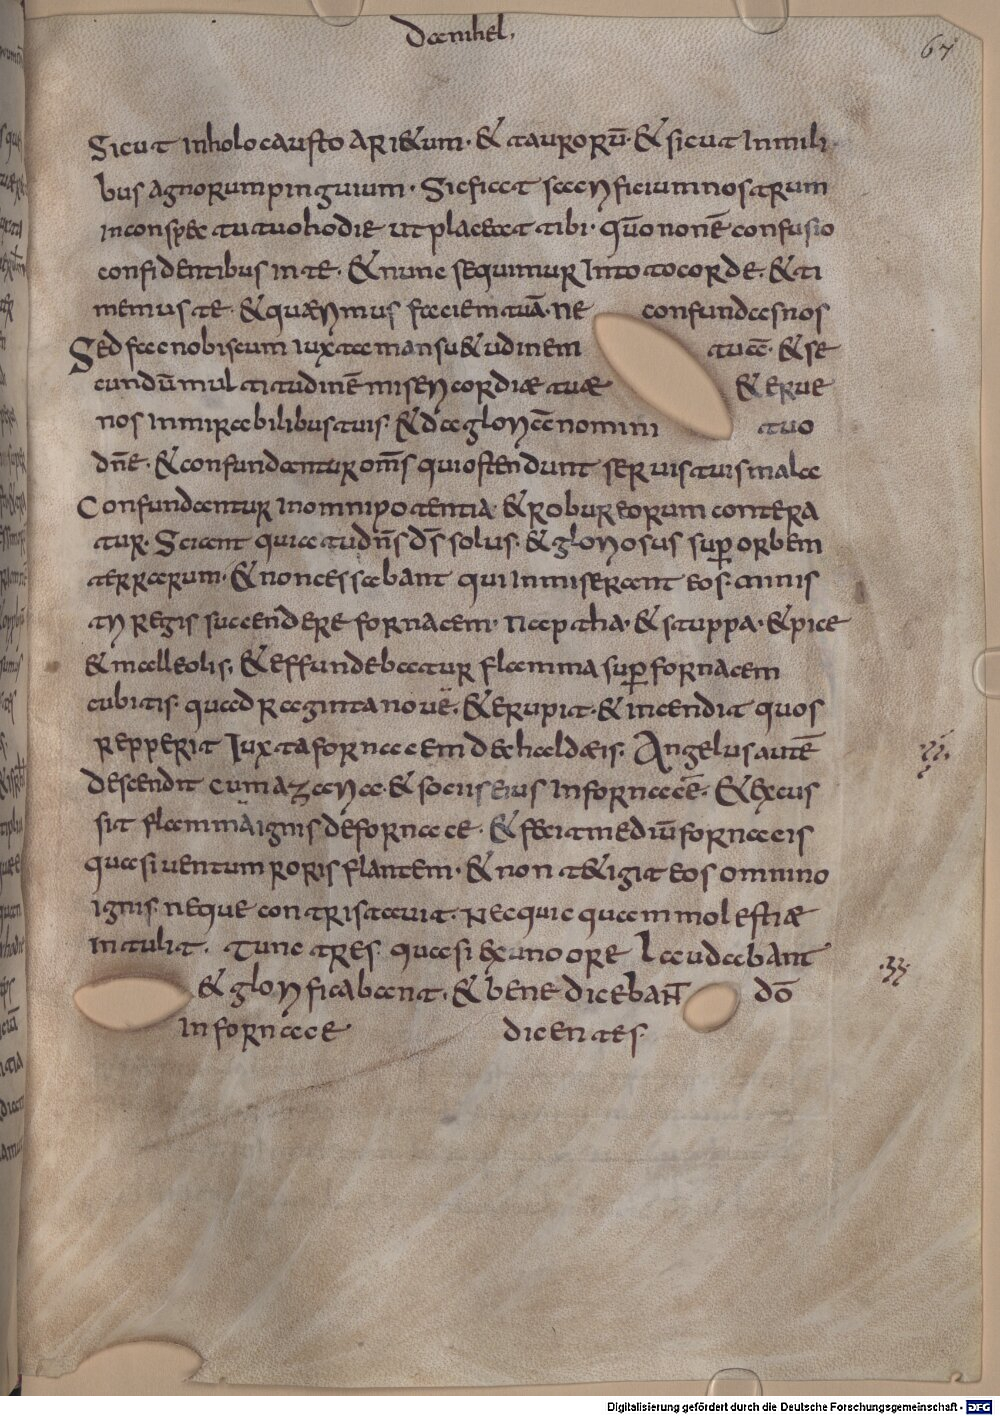 Danihel,
67
Sicut inholocausto ari&um· & taurorū· & sicut Inmili
bus agnorumpinguium· Sicfiat sacrificiumnostrum
inconspec tutuohodie utplaceat tibi· qūononē confusio
confidentibus inte· &nunc sequimur Intotocorde· &ti
memuste· &quærimus faciemtuā· ne confundasnos
Sedfacnobiscum iuxtamansu&udinem tuā· &se
cundūmultitudinēmisericordiæ tuæ &erue
nos inmirabilibustuis· &dagloriānomini tuo
dn̄e· &confundantur om̄s quiostendunt seruistuismala
Confundantur inomnipotentia &roboreorum contera
tur· Sciant quiatudn̄s ds̄ solus· &gloriosus sup̄ orbem
terrarum· &noncessabant quiinmiserant eos· minis
tri regis succendere fornacem· napt̄ha· &stuppa· &pice
&malleolis· &effundebatur flamma sup̄ fornacem
cubitis· quadraginta nouē· &erupit· &incendit quos
repperit Juxtafornacem dechaldæis· Angelus autē
descendit cumazaria· &sociiseius Infornacē· &excus
sit flammāignis defornace· &fecitmediūfornacis
quasi uentum roris flantem· & non t&igit eos omnino
ignis· neque contristauit· necquicquammolestiæ
intulit· Tunc tres· quasi exuno ore laudabant
&glorificabant· &benedicebant̄ dō
infornace dicentes·
Digitalisierung gefördert durch die Deutsche Forschungsgemeinschaft - DFG